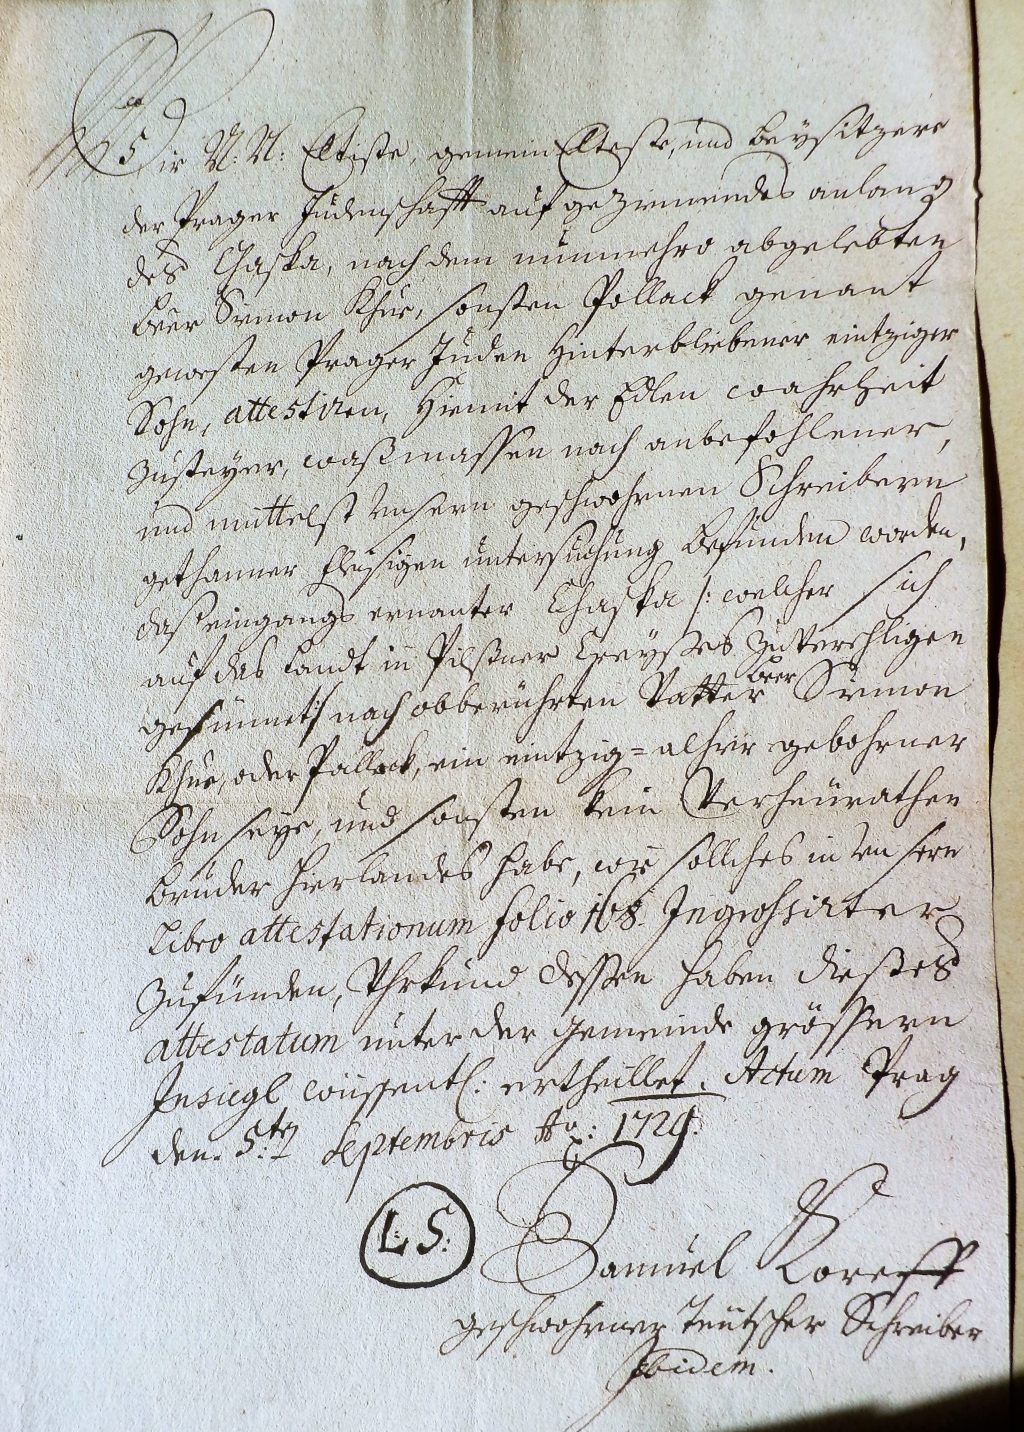 Wir N: N: Eltiste, gemein Elteste, und beysitzere
der Prager Judenschafft auf gezimendes anlang
des Chaska, nach dem nunmehro abgelebten
beer Simon Khue, sonsten Pollack genant
gewesten Prager Juden Hinterbliebener eintziger
Sohn, attestiren, Hiemit der Edlen wahrheit
zusteyer, waßmassen nach anbefohlener,
und mittelst unsern geschwohrnen Schreibern
gethanner fleisigen untersuchung befunden worden,
daß eingangs ernanter Chaska /: welcher sich
auf das Landt in Pilßner Creyßes zuverehligen
gesünnet :/ nach obberührten Vatter beer Simon
Khue, oder Pallack, ein eintzig = alhier gebohrner
Sohn seye, und sonsten kein Verheurathen
bruder hierlandes habe, wie sollches in unsern
Libro attestationum folio 168. Ingrossirter
zufünden, Uhrkund dessen haben dießes
attestatum unter der Gemeinde grössern
Insiegl wüssentl: ertheillet. Actum Prag
den 5:ten Septembris Ao: 1729.
L: S:
Samuel Koreff
geschwohrner Teutscher Schreiber
Ibidem.